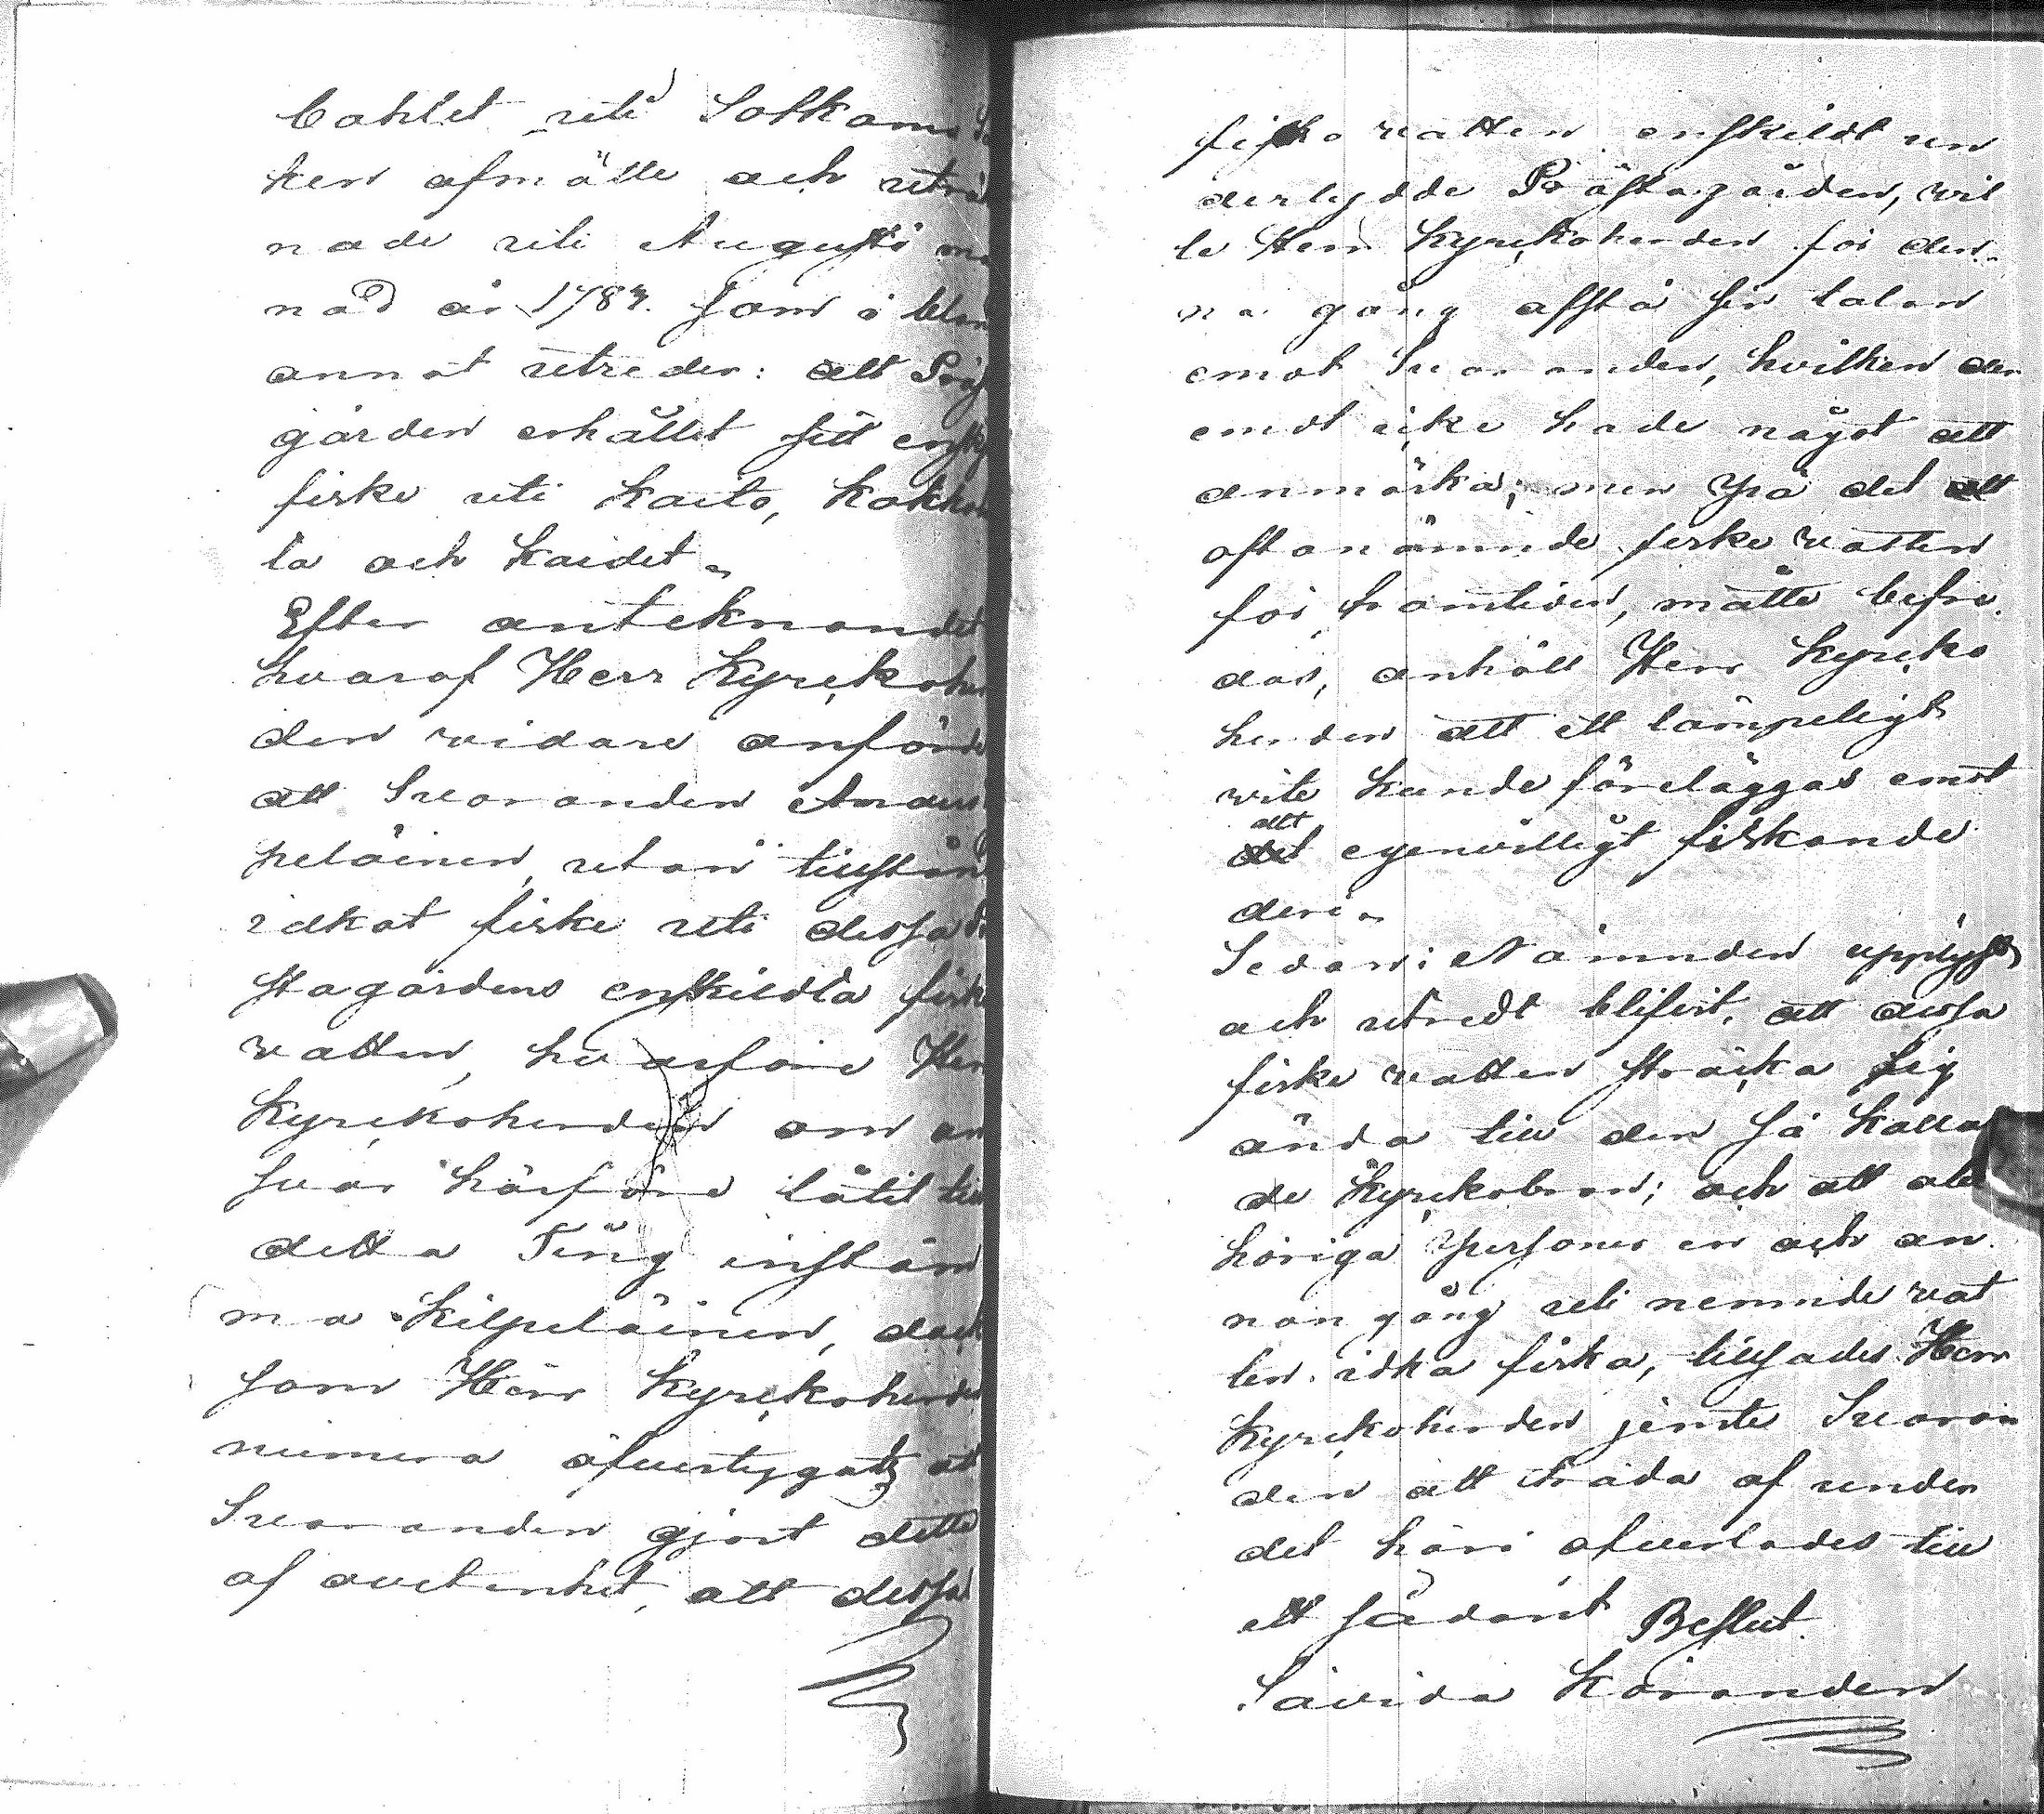 bohlet uti Sotkamo So
ken afmätte och utröt
nade uti Augusti må
nad år 1787. som i blan
annat utreder: att Präst
gården erhållit sitt ensky
fiske uti Kaito, Kokkoi
la och Kaidet„
Efter anteknandet
hvaraf Herr Kyrckoher
den vidare anförde
att Svaranden
peläinen, utan tillstånd
idkat fiske uti dessa Pr
stagårdens enskildta fiske
vatten, hvarföre Herr
Kyrckoherden om an
svar härföre låtit till
detta Ting instäm
ma Kilpeläinen, dock
som Herr Kyrckoherden
numera öfvertygats at
Svaranden gjort detta
af ovetenhet, att dessa
fiske vatten enskildt un
derlydde Prästagården, vil
le Herr Kyrckoherden för den„
na gång afstå sin talan
emot Svaranden, hvilken der
emot icke hade något att
anmärka; men på det att
oftanämnde fiske vatten
för framtiden, måtte befre„
das, anhöll Herr Kyrcko
herden att ett lämpeligt
vite kunde föreläggas emot
allt
det egenvilligt fiskande
deri„
Sedan i Nämnden upplyst
och utredt blifvit, att dessa
fiske vatten sträcka sig
ända till den så kalla
de Kyrckobron; och att obe
höriga personer en och an„
nan gång uti nemnde vat
ten idka fiska, tillsades Herr
Kyrckoherden jemte Svaran
den att träda af under
det häri öfverlades till
ett sådant Beslut.
Såvida Käranden